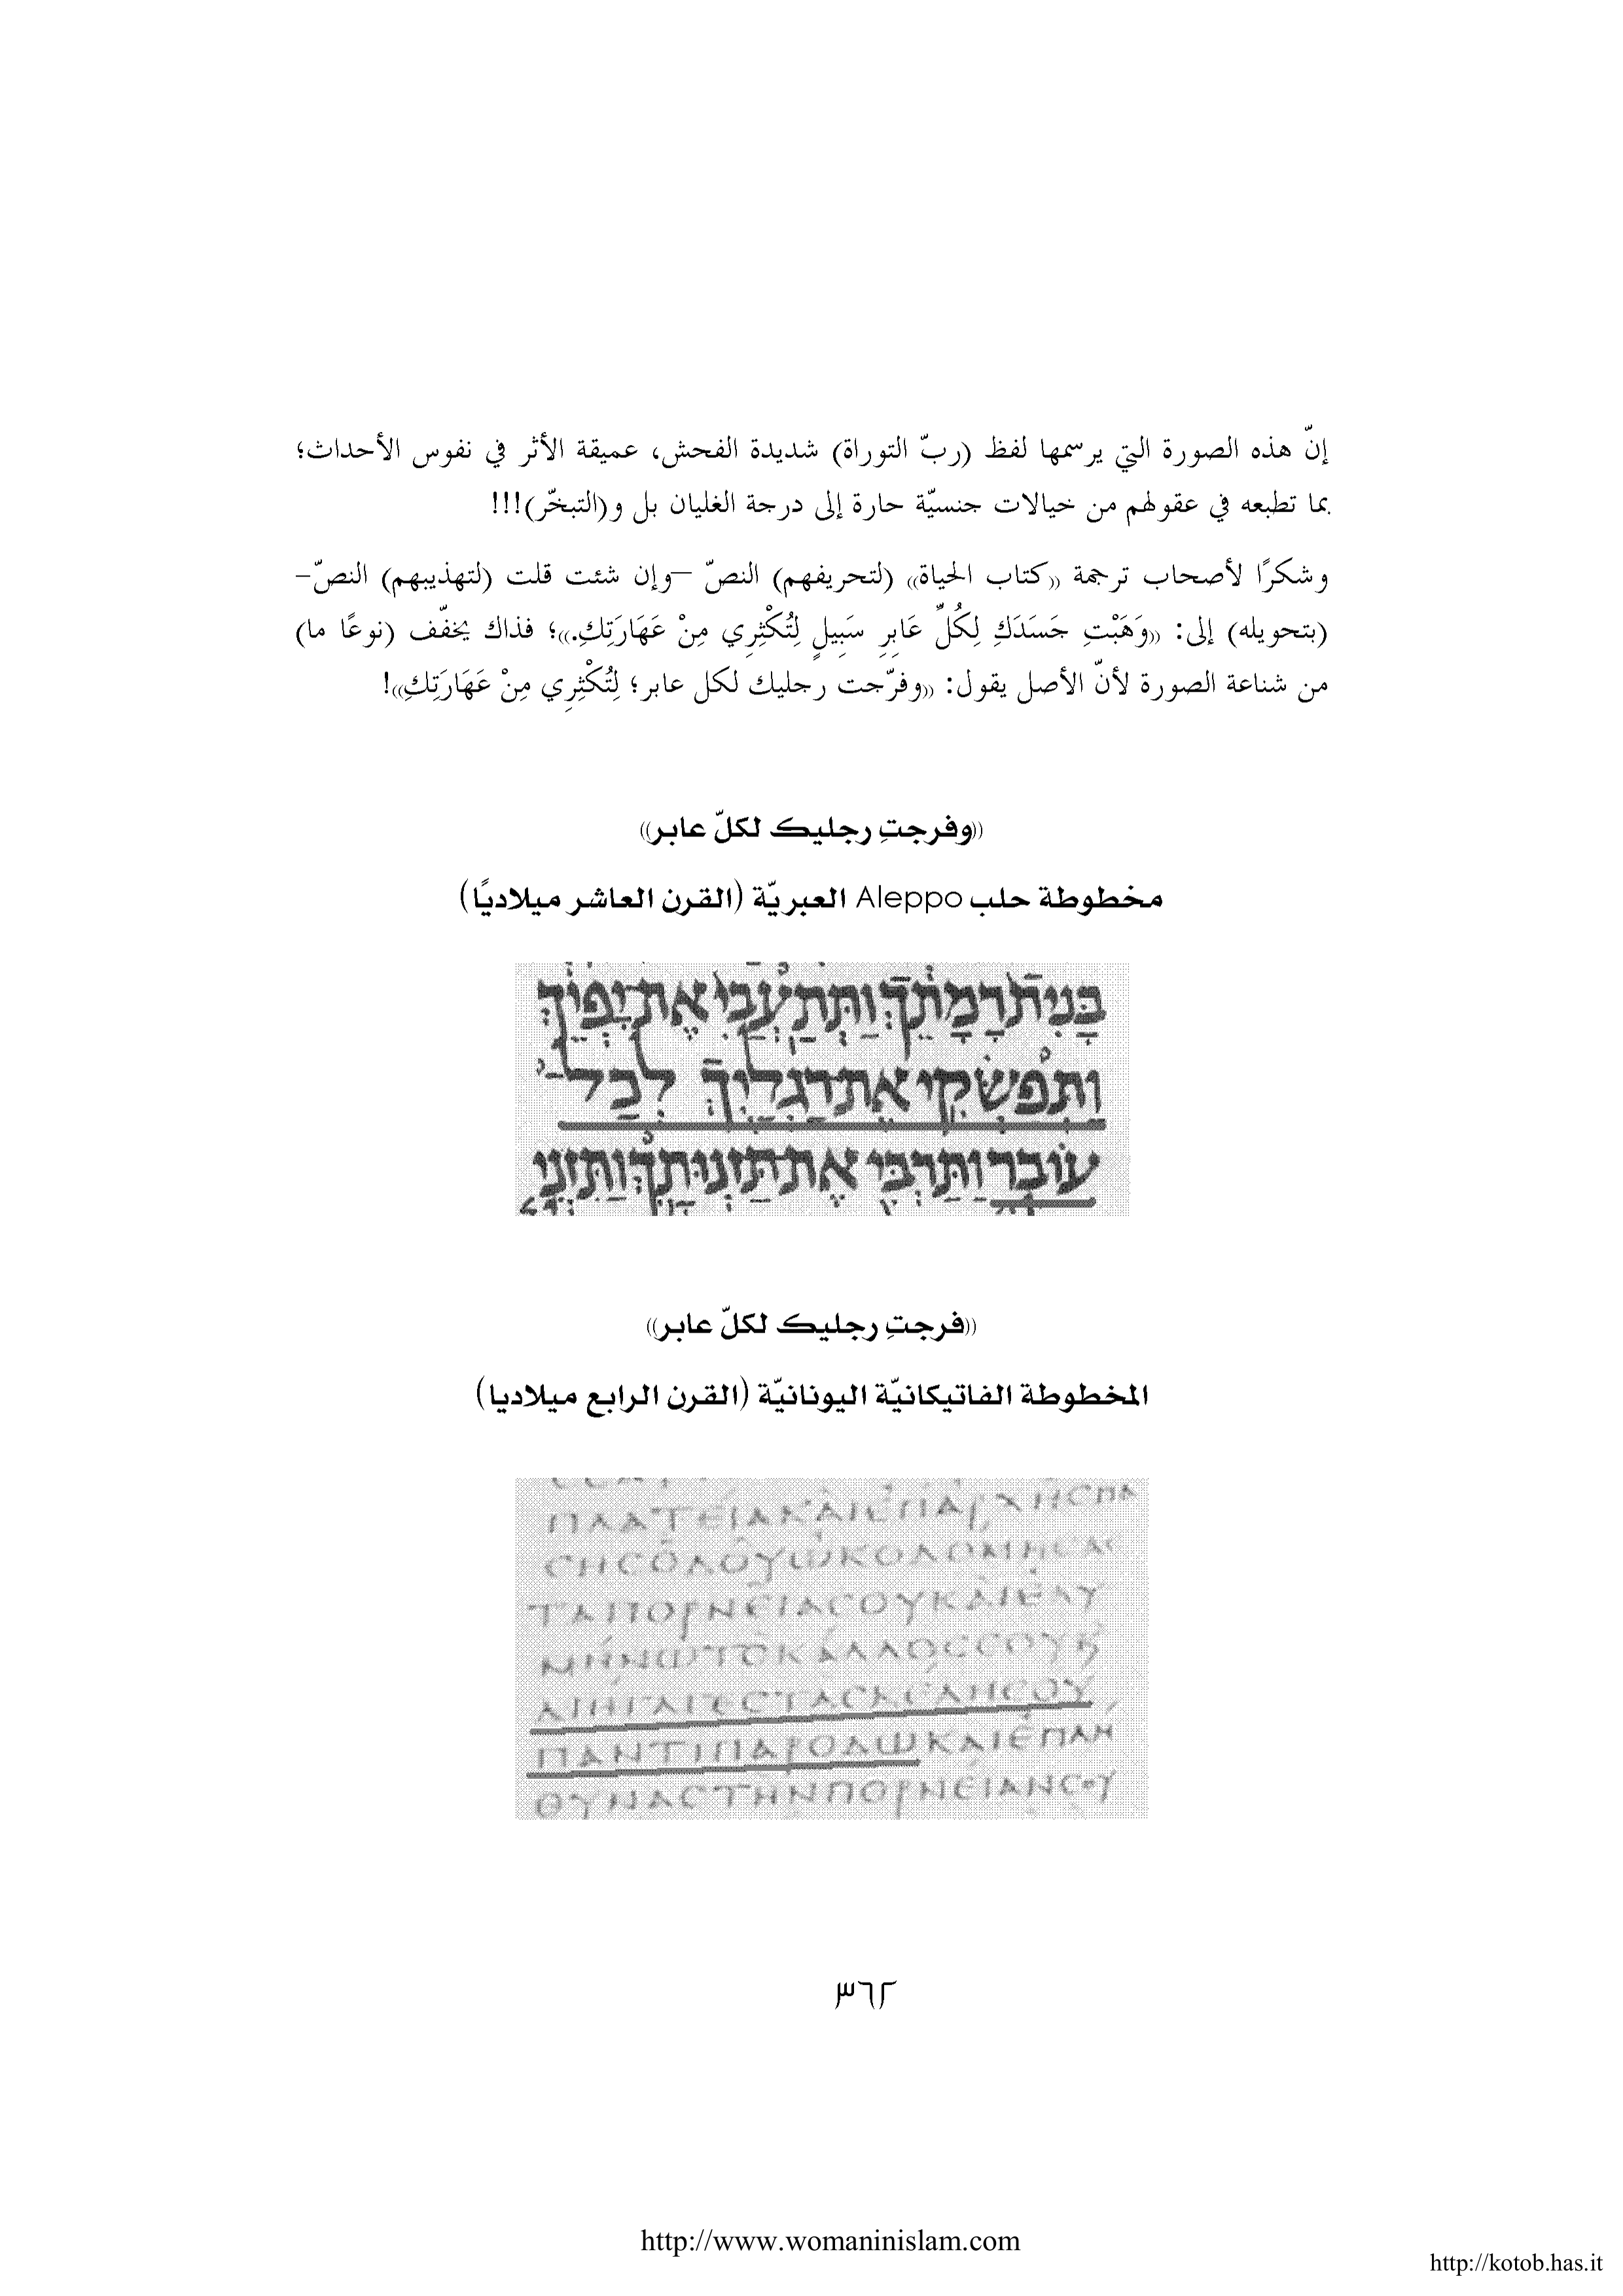 إنّ هذه الصورة التي يرسمها لفظ (ربّ التوراة) شديدة الفحش، عميقة الأثر في نفوس الأحداث؛
بما تطبعه في عقولهم من خيالات جنسيّة حارة إلى درجة الغليان بل و(التبخّر)!!!
وشكرًا لأصحاب ترجمة «كتاب الحياة» (لتحريفهم) النصّ –وإن شئت قلت (لتهذيبهم) النصّ–
(بتحويله) إلى: «وَهَبْتِ جَسَدَكِ لِكُلِّ عَابِرِ سَبِيلٍ لِتُكْثِرِي مِنْ عَهَارَتِكِ.»؛ فذاك يخفّف (نوعًا ما)
من شناعة الصورة لأنّ الأصل يقول: «وفرّجت رجليك لكل عابر؛ لِتُكْثِرِي مِنْ عَهَارَتِكِ»!
«وفرجتِ رجليك لكلّ عابر»
مخطوطة حلب Aleppo العبريّة (القرن العاشر ميلاديًا)
בָּנִית רָמָתֵךְ וַתְּתַעֲבִי אֶת יָפְיֵךְ
וַתְּפַשְּׂקִי אֶת רַגְלַיִךְ לְכָל
עוֹבֵר וַתַּרְבִּי אֶת תַּזְנוּתֵךְ וַתִּזְנִי
«فرجتِ رجليك لكلّ عابر»
المخطوطة الفاتيكانيّة اليونانيّة (القرن الرابع ميلاديا)
ΠΛΑΤΕΙΑΚΑΙΕΠΑΡΧΗCΠΑ
CΗCΟΔΟΥΩΚΟΔΟΜΗCΑC
ΤΑΠΟΡΝΕΙΑCΟΥΚΑΙΕΛΥ
ΜΗΝΩΤΟΚΑΛΛΟCCΟΥΚ
ΑΙΗΓΑΓΕCΤΑCΚΕΛΗCΟΥ
ΠΑΝΤΙΠΑΡΟΔΩΚΑΙΕΠΛΗ
ΘΥΝΑCΤΗΝΠΟΡΝΕΙΑΝCΟΥ
٣٦٢
http://www.womaninislam.com
http://kotob.has.it